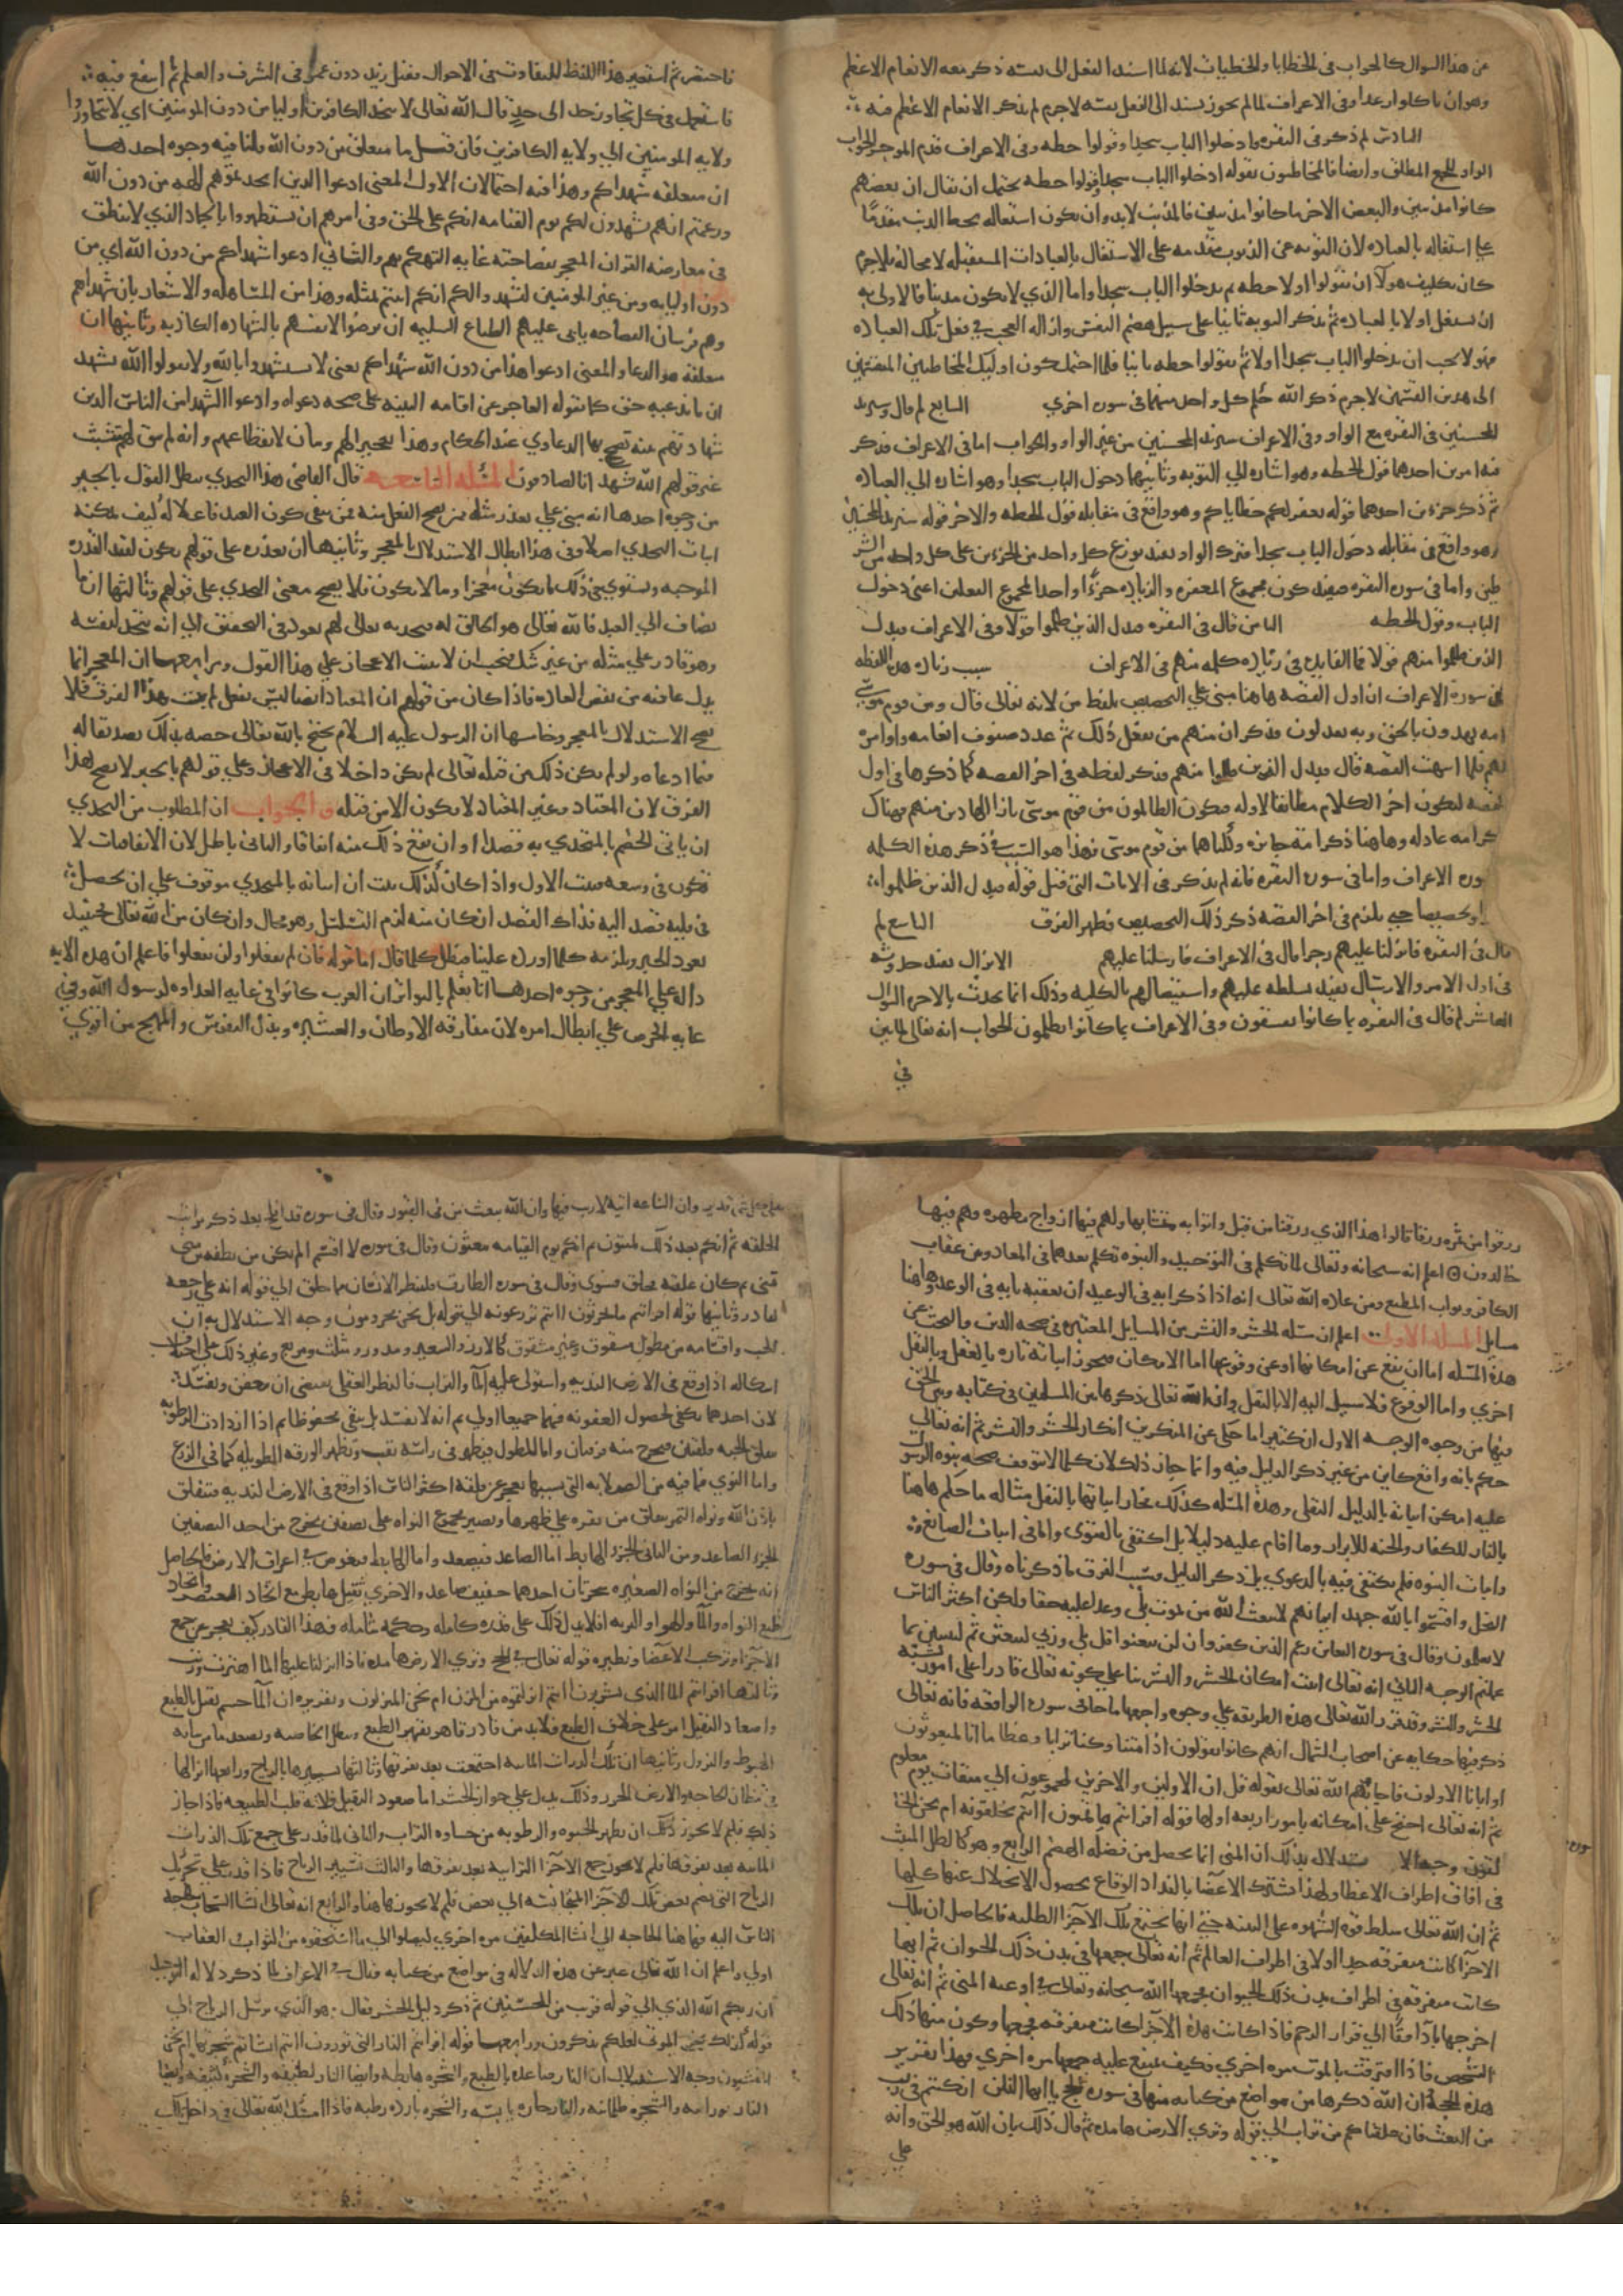 من هذا السوال كالجواب في الخطايا والخطيات لانه لما اسند الفعل الى نفسه ذكر معه الانعام الاعظم
وهو ان ياكلوا رغدا وفي الاعراف لما لم يجوز يسند الى الفعل نفسه لاجرم لم يذكر الانعام الاعظم فيه
السادس لم ذكر في البقره وادخلوا الباب سجدا وقولوا حطه وفي الاعراف قدم الموخر الجواب
الواو للجمع المطلق وايضا فالمخاطبون بقوله ادخلوا الباب سجدا وقولوا حطه يحتمل ان يقال ان بعضهم
كانوا مذنبين والبعض الاخر ما كانوا مذنبين فالمذنب لابد وان يكون اشتغاله بحط الذنب مقدما
على اشتغاله بالعباده لان التوبه عن الذنوب متقدمه على الاشتغال بالعبادات المستقبله لا محاله فلاجرم
كان تكليف هولا ان يقولوا اولا حطه ثم يدخلوا الباب سجدا واما الذي لا يكون مذنبا فالاولى به
ان يشتغل اولا بالعباده ثم يذكر التوبه ثانيا على سبيل هضم النفس وازاله العجب في فعل تلك العباده
فهولا يجب ان يدخلوا الباب سجدا اولا ثم يقولوا حطه ثانيا فلما احتمل كون اوليك المخاطبين المنقسمين
الى هذين القسمين لاجرم ذكر الله حكم كل واحد منهما في سوره اخري السابع لم قال وسنزيد
المحسنين في البقره مع الواو وفي الاعراف سنزيد المحسنين من غير الواو والجواب اما في الاعراف فذكر
فيه امرين احدهما قول الحطه وهو اشاره الي التوبه وثانيهما دخول الباب سجدا وهو اشاره الي العباده
ثم ذكر جزءين احدهما قوله نغفر لكم خطاياكم وهو واقع في مقابله قول الحطه والاخر قوله سنزيد المحسنين
وهو واقع في مقابله دخول الباب سجدا فترك الواو يفيد توزع كل واحد من الجزءين على كل واحد من الشر
طين واما في سوره البقره فيفيد كون مجموع المغفره والزياده جزءا واحدا لمجموع الفعلين اعني دخول
الباب وقول الحطه الثامن قال في البقره فبدل الذين ظلموا قولا وفي الاعراف فبدل
الذين ظلموا منهم قولا فما الفايده في زياده كلمه منهم في الاعراف سبب زياده هذه اللفظه
في سورة الاعراف ان اول القصه هاهنا مبني علي التخصيص بلفظ من لانه تعالى قال ومن قوم موسى
امه يهدون بالحق وبه يعدلون فذكر ان منهم من يفعل ذلك ثم عدد صنوف انعامه واوامره
لهم فلما انتهت القصه قال فبدل الذين ظلموا منهم فذكر لفظه في اخر القصه كما ذكرها في اول
القصه ليكون اخر الكلام مطابقا لاوله فيكون الظالمون من قوم موسى بازا الهادين منهم فهناك
ذكر امه عادله وهاهنا ذكر امة جايره وكلتاهما من قوم موسى فهذا هو السبب في ذكر هذه الكلمه
سوره الاعراف واما في سوره البقره فانه لم يذكر في الايات التي قبل قوله فبدل الذين ظلموا
وتخصيصا حتي يلزم في اخر القصه ذكر ذلك التخصيص فظهر الفرق التاسع لم
قال في البقره فانزلنا عليهم رجزا وقال في الاعراف فارسلنا عليهم الانزال يفيد حدوثه
في اول الامر والارسال يفيد تسلطه عليهم واستيصالهم بالكليه وذلك انما يحدث بالاخره السوال
العاشر لم قال في البقره بما كانوا يفسقون وفي الاعراف بما كانوا يظلمون الجواب انه تعالى لما بين
في
فاختصر ثم استعير هذا اللفظ للتفاوت في الاحوال فقيل زيد دون عمرو في الشرف والعلم ثم اتسع فيه
فاستعمل في كل تجاوز حد الى حد قال الله تعالى لا يتخذ الكافرين اوليا من دون المومنين اي لا يتجاوزوا
ولايه المومنين الي ولايه الكافرين فان قيل بما متعلق من دون الله قلنا فيه وجوه احدهما
ان متعلقه شهداكم وهذا فيه احتمالان الاول المعنى ادعوا الذين اتخذتموهم الهه من دون الله
وزعمتم انهم يشهدون لكم يوم القيامه انكم على الحق وفي امرهم ان يستظهروا بالجماد الذي لا ينطق
في معارضه القران المعجز بفصاحته غايه التهكم بهم والثاني ادعوا شهداكم من دون الله اي من
دون اوليايه ومن غير المومنين ليشهدوا لكم انكم اتيتم بمثله وهذا من المساهله والاشعار بان شهداهم
وهم فرسان الفصاحه يابى عليهم الطباع السليمه ان يرضوا لانفسهم بالشهاده الكاذبه وثانيها ان
متعلقه هو الدعا والمعنى ادعوا هذا من دون الله شهداكم يعني لا تستشهدوا بالله ولا تقولوا الله يشهد
ان ما ندعيه حق كما يقوله العاجز عن اقامه البينه على صحه دعواه وادعوا الشهدا من الناس الذين
شهادتهم بينه تصحح بها الدعاوي عند الحكام وهذا تعجيز لهم وبيان لانقطاعهم وانه لم يبق لهم متشبث
غير قولهم الله يشهد انا لصادقون المسله التاسعه قال القاضي هذا التحدي يبطل القول بالجبر
من وجوه احدها انه مبني علي تعذر مثله ممن يصح الفعل منه فمن ينفى كون العبد فاعلا له كيف يمكنه
اثبات التحدي اصلا وفي هذا ابطال الاستدلال بالمعجز وثانيها ان تعذره على قولهم يكون لفقد القدره
الموجبه ويستوي في ذلك ما يكون معجزا وما لا يكون فلا يصح معنى التحدي على قولهم وثالثها ان ما
يضاف الي العبد فالله تعالى هو الخالق له فتحديه تعالى لهم يعود في التحقيق الي انه متحد لنفسه
وهو قادر علي مثله من غير شك فيجب ان لا يثبت الاعجاز علي هذا القول ورابعها ان المعجز انما
يدل بما فيه من نقض العاده فاذا كان من قولهم ان المعتاد ايضا ليس بفعل لم يثبت هذا الفرق فلا
يصح الاستدلال بالمعجز وخامسها ان الرسول عليه السلام يحتج بالله تعالى خصه بذلك تصديقا له
فيما ادعاه ولو لم يكن ذلك من قبله تعالى لم يكن داخلا في الاعجاز وعلي قولهم بالجبر لا يصح هذا
الفرق لان المعتاد وغير المعتاد لا يكون الا من قبله والجواب ان المطلوب من التحدي
ان ياتي الخصم بالمتحدي به قصدا او ان يقع ذلك منه اتفاقا والثاني باطل لان الاتفاقيات لا
تكون في وسعه فثبت الاول واذا كان كذلك ثبت ان اتيانه بالمتحدي موقوف علي ان يحصل
في قلبه قصد اليه فذاك القصد ان كان منه لزم التسلسل وهو محال وان كان من الله تعالى فحينيذ
يعود الجبر ويلزمه كلما اورده علينا فبطل كلما قال اما قوله فان لم تفعلوا ولن تفعلوا فاعلم ان هذه الايه
داله علي المعجز من وجوه احدها انا نعلم بالتواتر ان العرب كانوا في غايه العداوه لرسول الله وفي
غايه الحرص علي ابطال امره لان مفارقه الاوطان والعشيره وبذل النفوس والمهج من اقوي
رزقوا من ثمره رزقا قالوا هذا الذي رزقنا من قبل واتوا به متشابها ولهم فيها ازواج مطهره وهم فيها
خالدون اعلم انه سبحانه وتعالى لما تكلم في التوحيد والنبوه تكلم بعدهما في المعاد ومن عقاب
الكافر وثواب المطيع ومن عاده الله تعالى انه اذا ذكر ايه في الوعيد ان يعقبه بايه في الوعد وهاهنا
مسايل المسله الاولى اعلم ان مسله الحشر والنشر من المسايل المعتبره في صحه الدين والبحث عن
هذه المسله اما ان يقع عن امكانها او عن وقوعها اما الامكان فيجوز اثباته تاره بالعقل وبالنقل
اخري واما الوقوع فلا سبيل اليه الا بالنقل وان الله تعالى ذكرها بين المسلمين في كتابه وبين الحق
فيها من وجوه الوجه الاول ان كثيرا ما حكى عن المنكرين انكار الحشر والنشر ثم انه تعالي
حكم بانه واقع كاين من غير ذكر الدليل فيه وانما جاز ذلك لان كلما لا يتوقف صحه نبوه الرسول
عليه امكن اثباته بالدليل النقلي وهذه المسله كذلك فجاز اثباتها بالنقل مثاله ما حكم هاهنا
بالنار للكفار والجنه للابرار وما اقام عليه دليلا بل اكتفى بالدعوى واما في اثبات الصانع
واثبات النبوه فلم يكتفى فيه بالدعوي بل ذكر الدليل وسبب الفرق ما ذكرناه وقال في سوره
النحل واقسموا بالله جهد ايمانهم لا يبعث الله من يموت بلى وعدا عليه حقا ولكن اكثر الناس
لا يعلمون وقال في سوره التغابن زعم الذين كفروا ان لن يبعثوا قل بلي وربي لتبعثن ثم لتنبئن بما
عملتم الوجه الثاني انه تعالى اثبت امكان الحشر والنشر بنا علي كونه تعالى قادرا على امور تشبه
الحشر والنشر وقد قرر الله تعالى هذه الطريقه علي وجوه واجمعها ما جا في سوره الواقعه فانه تعالى
ذكر فيها حكايه عن اصحاب الشمال انهم كانوا يقولون اذا متنا وكنا ترابا وعظاما اانا لمبعوثون
او اباونا الاولون فاجابهم الله تعالى بقوله قل ان الاولين والاخرين لمجموعون الي ميقات يوم معلوم
ثم انه تعالى احتج على امكانه بامور اربعه اولها قوله افرايتم ما تمنون اانتم تخلقونه ام نحن الخا
لقون وجه الا ستدلال بذلك ان المني انما يحصل من فضله الهضم الرابع وهو كالطل المنبث
في افاق اطراف الاعضا ولهذا تشترك الاعضا بالتذاذ الوقاع بحصول الانحلال عنها كلها
ثم ان الله تعالى سلط قوه الشهوه على البنيه حتي انها تجمع تلك الاجزا الطليه فالحاصل ان تلك
الاجزا كانت متفرقه جدا اولا في اطراف العالم ثم انه تعالى جمعها في بدن ذلك الحيوان ثم انها
كانت متفرقه في اطراف بدن ذلك الحيوان فجمعها الله سبحانه وتعالى في اوعيه المني ثم انه تعالى
اخرجها ماء دافقا الي قرار الرحم فاذا كانت هذه الاجزا كانت متفرقه فجمعها وكون منها ذلك
الشخص فاذا افترقت بالموت مره اخري فكيف يمتنع عليه جمعها مره اخري فهذا تقرير
هذه الحجه ان الله ذكرها من مواضع من كتابه منها في سوره الحج يا ايها الناس ان كنتم في ريب
من البعث فانا خلقناكم من تراب الي قوله وترى الارض هامده ثم قال ذلك بان الله هو الحق وانه
علي
على كل شي قدير وان الساعه اتيه لا ريب فيها وان الله يبعث من في القبور وقال في سوره قد افلح بعد ذكر مراتب
الخلقه ثم انكم بعد ذلك لميتون ثم انكم يوم القيامه تبعثون وقال في سوره لا اقسم الم يكن من نطفه من مني
تمنى ثم كان علقه فخلق فسوى وقال في سوره الطارق فلينظر الانسان مما خلق الي قوله انه على رجعه
لقادر وثانيها قوله افرايتم ما تحرثون اانتم تزرعونه الي قوله بل نحن محرومون وجه الاستدلال به ان
الحب واقسامه من مطول مشقوق وغير مشقوق كالارز والشعير ومدور ومثلث ومربع وغير ذلك على اختلاف
اشكاله اذا وقع في الارض النديه واستولى عليه الما والتراب فالنظر العقلي يقتضي ان يعفن ويفسد
لان احدهما يكفي لحصول العفونه فهما جميعا اولي ثم انه لا يفسد بل يبقى محفوظا ثم اذا ازدادت الرطوبه
تفلق الحبه فلقتين فيخرج منه ورقتان واما المطول فيظهر في راسه ثقب وتظهر الورقه الطويله كما في الزرع
واما النوى فما فيه من الصلابه التي بسببها يعجز عن فلقه اكثر الناس اذا وقع في الارض النديه تنفلق
باذن الله ونواه التمر تفلق من نقره علي ظهرها وتصير مجموع النواه على نصفين يخرج من احد النصفين
الجزء الصاعد ومن الثاني الجزء الهابط اما الصاعد فيصعد واما الهابط فيغوص في اعماق الارض فالحاصل
انه يخرج من النواه الصغيره شجرتان احدهما خفيف صاعد والاخري ثقيل هابط مع اتحاد العنصر واتحاد
طبع النواه والما والهوا والتربه افلا يدل ذلك على قدره كامله وحكمه شامله فهذا القادر كيف يعجز عن جمع
الاجزا وتركيب الاعضا ونظيره قوله تعالى في الحج وتري الارض هامده فاذا انزلنا عليها الما اهتزت وربت
وثالثها افرايتم الما الذي تشربون اانتم انزلتموه من المزن ام نحن المنزلون وتقريره ان الما جسم ثقيل بالطبع
واصعاد الثقيل امر على خلاف الطبع فلابد من قادر قاهر يقهر الطبع ويبطل الخاصيه ويصعد ما من شانه
الهبوط والنزول وثانيها ان تلك الذرات الماييه اجتمعت بعد تفرقها وثالثها تسييرها بالرياح ورابعها انزالها
في مظان الحاجه والارض الجرز وذلك يدل علي جواز الحشر اما صعود الثقيل فلانه قلب الطبيعه فاذا جاز
ذلك فلم لا يجوز ذلك ان يظهر الحيوه والرطوبه من حساوه التراب والثاني لما قدر على جمع تلك الذرات
الماييه بعد تفرقها فلم لا يجوز جمع الاجزا الترابيه بعد تفرقها والثالث تسيير الرياح فاذا قدر علي تحريك
الرياح التي تضم بعض تلك الاجزا المتجانسه الي بعض فلم لا يجوز هاهنا والرابع انه تعالى انشا السحاب لحاجه
الناس اليه فهاهنا الحاجه الي انشا المكلفين مره اخري ليصلوا الي ما استحقوه من الثواب والعقاب
اولي واعلم ان الله تعالى عبر عن هذه الدلاله في مواضع من كتابه فقال في الاعراف لما ذكر دلاله التوحيد
ان ربكم الله الذي الي قوله قريب من المحسنين ثم ذكر دليل الحشر فقال وهو الذي يرسل الرياح الي
قوله كذلك نخرج الموتى لعلكم تذكرون ورابعها قوله افرايتم النار التي تورون اانتم انشاتم شجرتها ام نحن
المنشيون وجه الاستدلال ان النار صاعده بالطبع والشجره هابطه وايضا النار لطيفه والشجره كثيفه وايضا
النار نورانيه والشجره ظلمانيه والنار حاره يابسه والشجره بارده رطبه فاذا امسك الله تعالى في داخل تلك